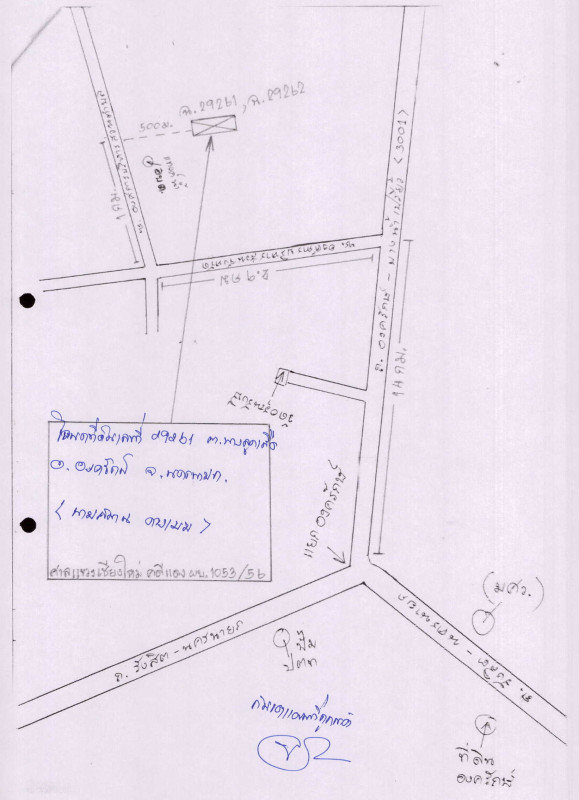 ฉ.29261, ฉ.29262
500ม.
1 กม.
ถ. องครักษ์ - บางน้ำเปรี้ยว (3001)
2.9 กม
14 กม.
โฉนดที่ดินเลขที่ 29261 ต.บางลูกเสือ
อ. องครักษ์ จ. นครนายก.
ศาลแขวงเชียงใหม่ คดีแดง ผบ. 1053/56
แยก องครักษ์
ถ. รังสิต - นครนายก
ปั๊ม
ปตท
(มศว.)
ถ. รังสิต - นครนายก
ที่ดิน
องครักษ์